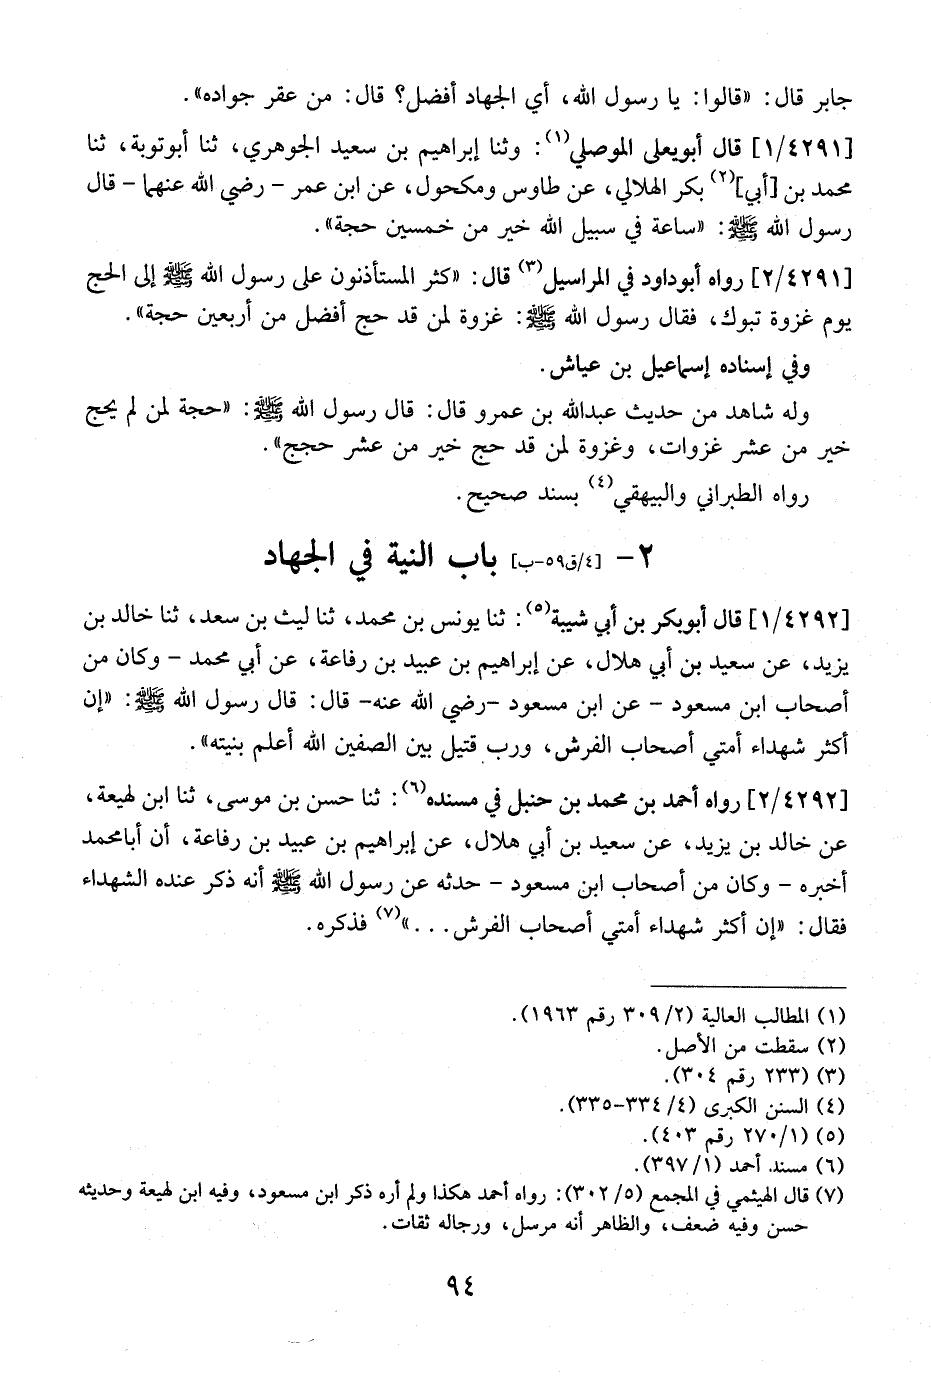 جابر قال: «قالوا: يا رسول الله، أي الجهاد أفضل؟ قال: من عقر جواده».
[١/٤٢٩١] قال أبويعلى الموصلي(١): وثنا إبراهيم بن سعيد الجوهري، ثنا أبوتوبة، ثنا
محمد بن [أبي](٢) بكر الهلالي، عن طاوس ومكحول، عن ابن عمر - رضي الله عنهما - قال
رسول الله ﷺ: «ساعة في سبيل الله خير من خمسين حجة».
[٢/٤٢٩١] رواه أبوداود في المراسيل(٣) قال: «كثر المستأذنون على رسول الله ﷺ إلى الحج
يوم غزوة تبوك، فقال رسول الله ﷺ: غزوة لمن قد حج أفضل من أربعين حجة».
وفي إسناده إسماعيل بن عياش.
وله شاهد من حديث عبدالله بن عمرو قال: قال رسول الله ﷺ: «حجة لمن لم يحج
خير من عشر غزوات، وغزوة لمن قد حج خير من عشر حجج».
رواه الطبراني والبيهقي(٤) بسند صحيح.
٢- [٤/ق٥٩-ب] باب النية في الجهاد
[١/٤٢٩٢] قال أبوبكر بن أبي شيبة(٥): ثنا يونس بن محمد، ثنا ليث بن سعد، ثنا خالد بن
يزيد، عن سعيد بن أبي هلال، عن إبراهيم بن عبيد بن رفاعة، عن أبي محمد - وكان من
أصحاب ابن مسعود - عن ابن مسعود -رضي الله عنه- قال: قال رسول الله ﷺ: «إن
أكثر شهداء أمتي أصحاب الفرش، ورب قتيل بين الصفين الله أعلم بنيته».
[٢/٤٢٩٢] رواه أحمد بن محمد بن حنبل في مسنده(٦): ثنا حسن بن موسى، ثنا ابن لهيعة،
عن خالد بن يزيد، عن سعيد بن أبي هلال، عن إبراهيم بن عبيد بن رفاعة، أن أبامحمد
أخبره - وكان من أصحاب ابن مسعود - حدثه عن رسول الله ﷺ أنه ذكر عنده الشهداء
فقال: «إن أكثر شهداء أمتي أصحاب الفرش...»(٧) فذكره.
(١) المطالب العالية (٣٠٩/٢ رقم ١٩٦٣).
(٢) سقطت من الأصل.
(٣) (٢٣٣ رقم ٣٠٤).
(٤) السنن الكبرى (٤/ ٣٣٤-٣٣٥).
(٥) (٢٧٠/١ رقم ٤٠٣).
(٦) مسند أحمد (٣٩٧/١).
(٧) قال الهيثمي في المجمع (٣٠٢/٥): رواه أحمد هكذا ولم أره ذكر ابن مسعود، وفيه ابن لهيعة وحديثه
حسن وفيه ضعف، والظاهر أنه مرسل، ورجاله ثقات.
٩٤